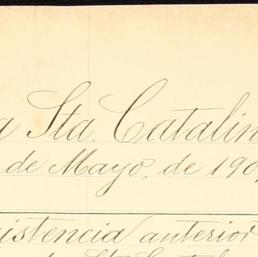 a Sta. Catalin
de Mayo, de 190
istencia anterior